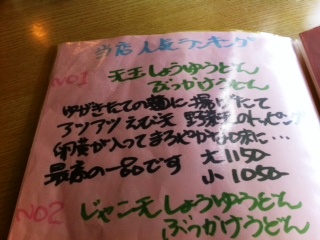 当店人気ランキング
NO1 天玉しょうゆうどん
ぶっかけうどん
ゆがきたての麺に、揚げたて
アツアツえび天 野菜天のトッピング
卵黄が入ってまろやかな味に…
最高の一品です 大1150
小1050
NO2 じゃこ天しょうゆうどん
ぶっかけうどん